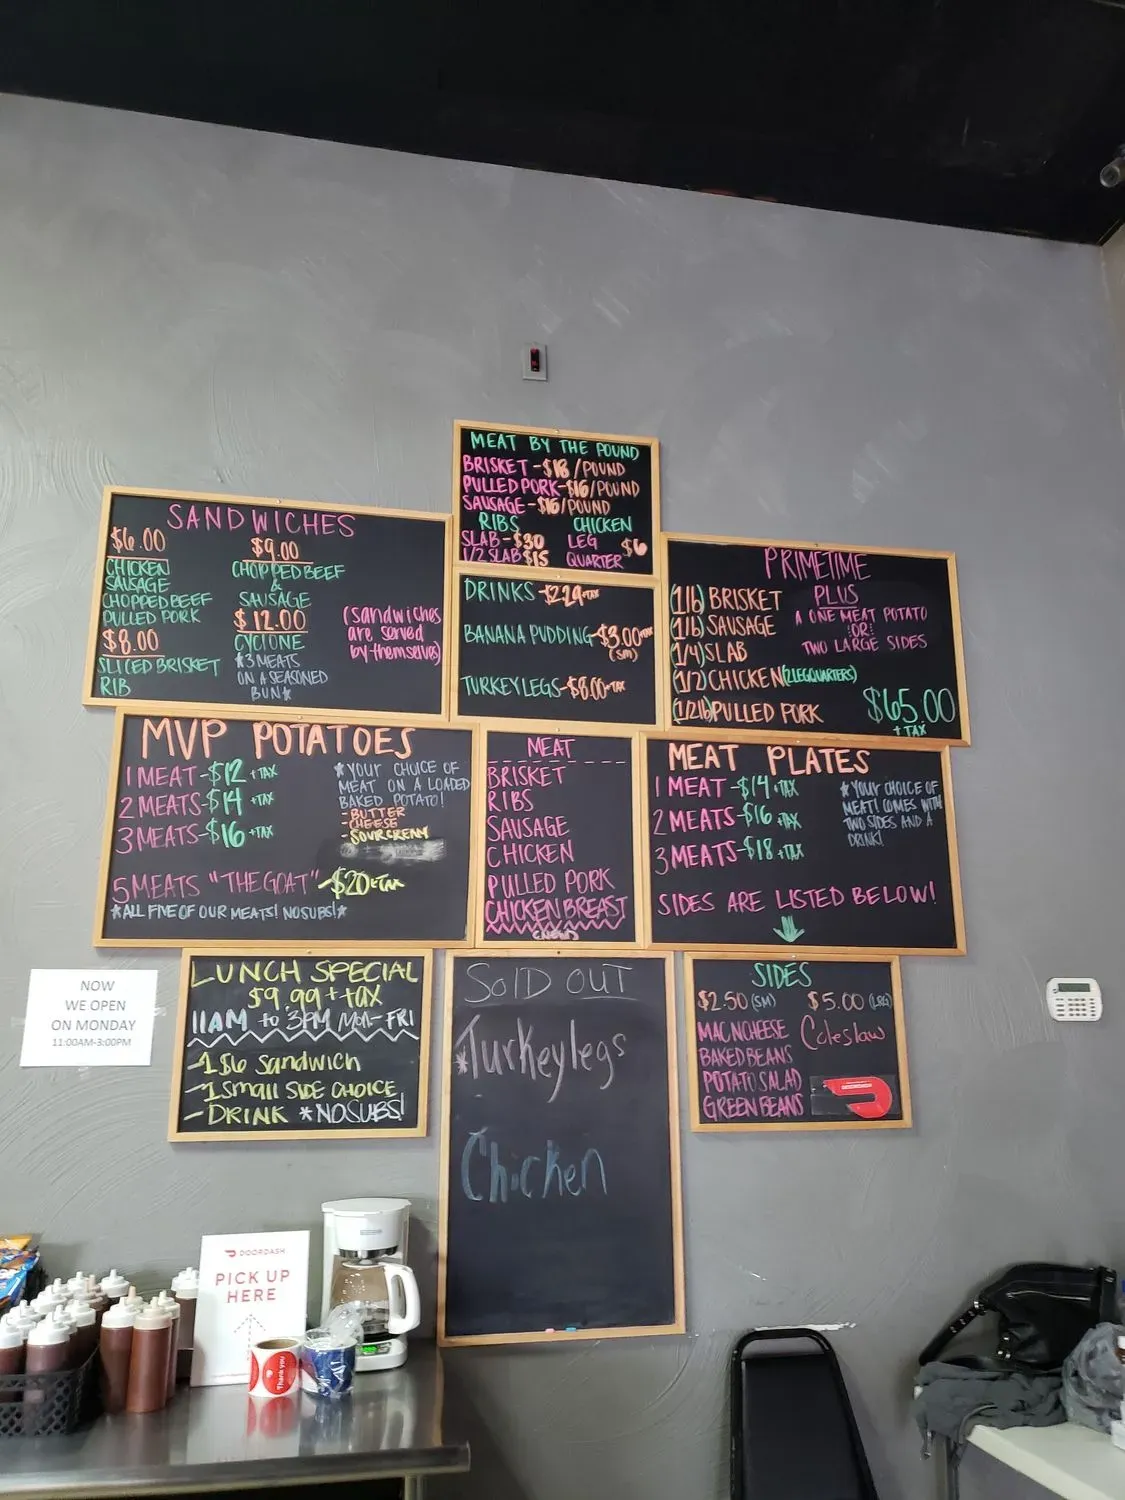 MEAT BY THE POUND
BRISKET - $18 / POUND
PULLED PORK - $16 / POUND
SAUSAGE - $16 / POUND
RIBS
SLAB - $30
1/2 SLAB $15
CHICKEN
LEG
QUARTER
$6
SANDWICHES
$6.00
CHICKEN
SAUSAGE
CHOPPED BEEF
PULLED PORK
$8.00
SLICED BRISKET
RIB
$9.00
CHOPPED BEEF
&
SAUSAGE
$12.00
CYCLONE
*3 MEATS
ON A SEASONED
BUN*
(sandwiches
are served
by themselves)
DRINKS - $2.29 + TAX
BANANA PUDDING - $3.00 + TAX
(SM)
TURKEY LEGS - $8.00 + TAX
PRIMETIME
(1lb) BRISKET
(1lb) SAUSAGE
(1/4) SLAB
(1/2) CHICKEN (2 LEG QUARTERS)
(1/2 lb) PULLED PORK
PLUS
A ONE MEAT POTATO
:OR:
TWO LARGE SIDES
$65.00
+ TAX
MVP POTATOES
1 MEAT - $12 + TAX
2 MEATS - $14 + TAX
3 MEATS - $16 + TAX
*YOUR CHOICE OF
MEAT ON A LOADED
BAKED POTATO!
- BUTTER
- CHEESE
- SOUR CREAM
5 MEATS "THE GOAT" - $20 + TAX
*ALL FIVE OF OUR MEATS! NO SUBS!*
MEAT
BRISKET
RIBS
SAUSAGE
CHICKEN
PULLED PORK
CHICKEN BREAST
MEAT PLATES
1 MEAT - $14 + TAX
2 MEATS - $16 + TAX
3 MEATS - $18 + TAX
*YOUR CHOICE OF
MEAT! COMES WITH
TWO SIDES AND A
DRINK!
SIDES ARE LISTED BELOW!
NOW
WE OPEN
ON MONDAY
11:00AM-3:00PM
LUNCH SPECIAL
$9.99 + tax
11AM to 3PM MON - FRI
- 1 $6 Sandwich
- 1 Small SIDE CHOICE
- DRINK *NO SUBS!
SOLD OUT
*Turkey legs
Chicken
SIDES
$2.50 (SM)
MAC N CHEESE
BAKED BEANS
POTATO SALAD
GREEN BEANS
$5.00 (LRG)
Coleslaw
DOORDASH
PICK UP
HERE
Thank you